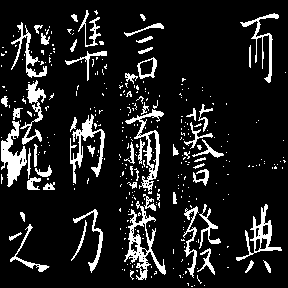 而典
謩發
言而成
準的乃
九流之